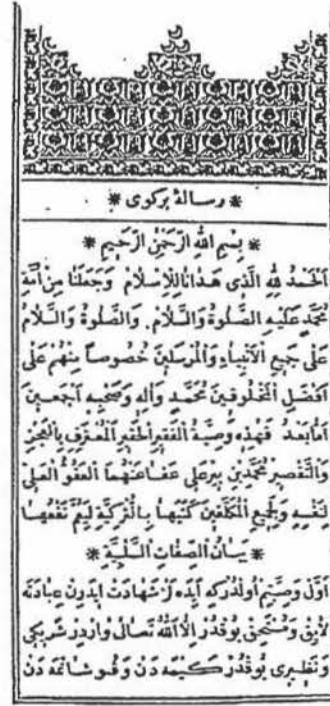 * رسالۀ بركوى *
* بِسْمِ اللهِ الرَّحْمٰنِ الرَّحِيمِ *
اَلْحَمْدُ لِلّٰهِ الَّذى هَدٰانَا لِلْاِسْلَامِ وَجَعَلَنَا مِنْ اُمَّةِ
مُحَمَّدٍ عَلَيْهِ الصَّلٰوةُ وَالسَّلَامُ وَالصَّلٰوةُ وَالسَّلَامُ
عَلٰى جَمِيعِ الْاَنْبِيَاءِ وَالْمُرْسَلِينَ خُصُوصاً مِنْهُمْ عَلٰى
اَفْضَلِ الْمَخْلُوقِينَ مُحَمَّدٍ وَاٰلِهِ وَصَحْبِهِ اَجْمَعِينَ
اَمَّا بَعْدُ فَهٰذِهِ وَصِيَّةُ الْفَقِيرِ الْحَقِيرِ الْمُعْتَرِفِ بِالْعَجْزِ
وَالتَّقْصِيرِ مُحَمَّدِ بْنِ پيرعلى عَفَا عَنْهُمَا الْعَفُوُّ الْعَلِىُّ
لِنَفْسِهِ وَلِجَمِيعِ الْمُكَلَّفِينَ كَتَبَهَا بِالتُّرْكِيَّةِ لِيَعُمَّ نَفْعُهَا
* بَيَانُ الصِّفَاتِ السَّلْبِيَّةِ *
اَوَّلْ وَصِيَّتِمْ اُولْدُرْكِهِ اَيْدَه لَرْ شَهَادَتْ اِيدَرِنْ عِبَادَتَه
لَايِقْ وَمُسْتَحِقْ يُوقْدُرْ اِلَّا اللهُ تَعَالٰى وَارْدِرْ شَرِيكِى
وَنَظِيرِى يُوقْدُرْ كَيْمَه دَنْ وَ شَانَمَه دَنْ